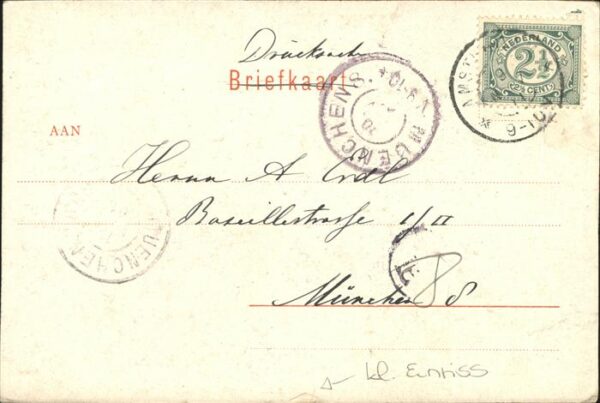 Drucksache
Briefkaart
NEDERLAND
2½
(2½ CENT)
AMST
9-10
MUENCHEN 8.
AAN
Herrn A
Bazeillestrasse 1/II
München 8
MUENCHEN
kl. Einriss